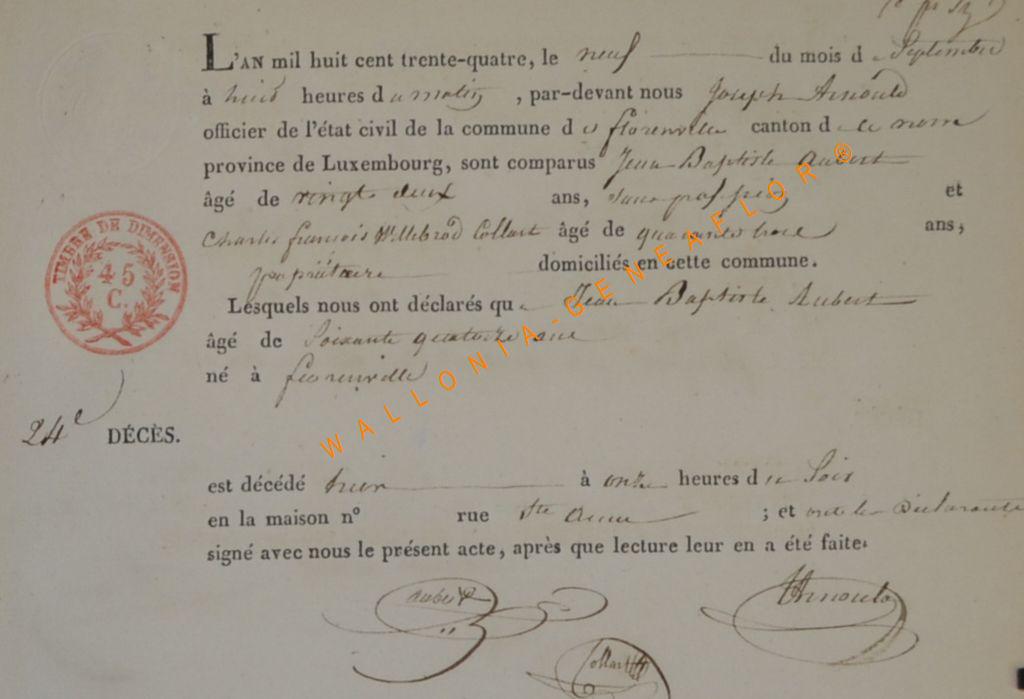 L'AN mil huit cent trente-quatre, le neuf du mois de Septembre
à huit heures du matin, par-devant nous Joseph Arnould
officier de l'état civil de la commune de florenville canton de ce nom
province de Luxembourg, sont comparus Jean Baptiste Aubert
âgé de vingt deux ans, sans profession et
Charles françois Willebrod Collart âgé de quarante trois ans,
propriétaire domiciliés en cette commune.
Lesquels nous ont déclarés que Jean Baptiste Aubert
âgé de Soixante quatorze ans
né à florenville
TIMBRE DE DIMENSION
45
C.
24e DÉCÈS.
est décédé hier à onze heures du Soir
en la maison nº rue Ste Anne ; et ont les Déclarants
signé avec nous le présent acte, après que lecture leur en a été faite.
aubert
JArnould
Collart
WALLONIA-GENEAFLOR®